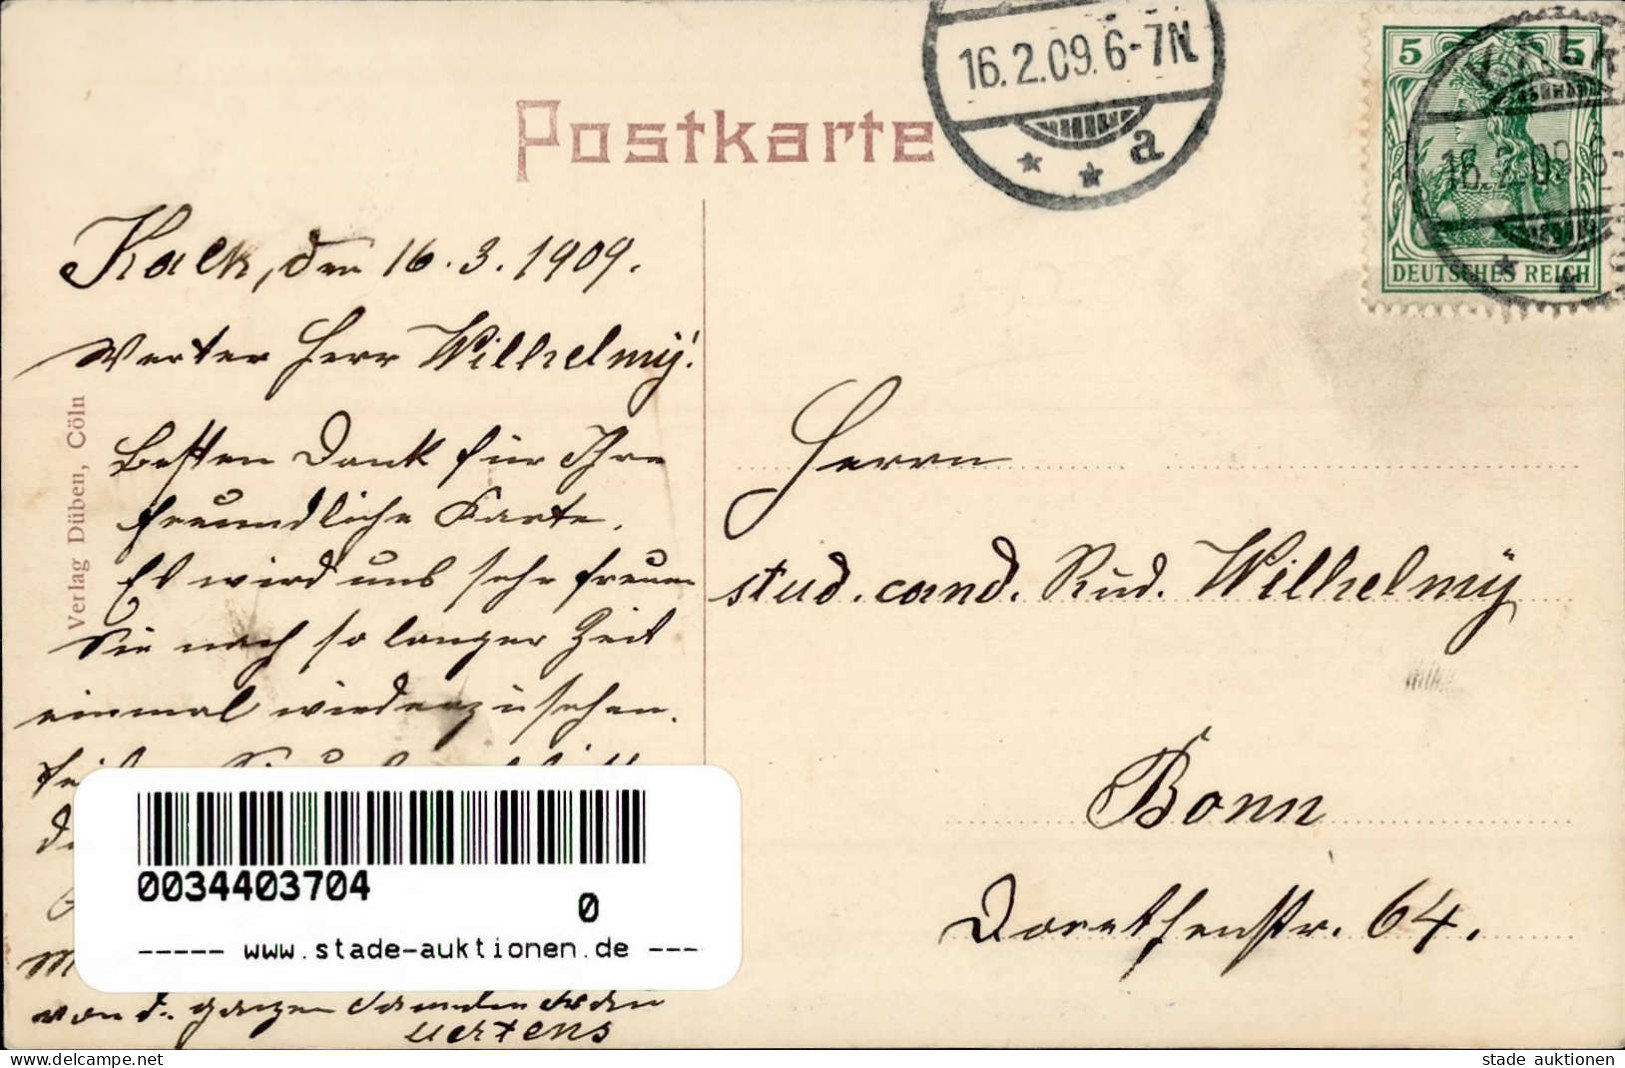 Postkarte
16.2.09. 6-7N.
* * a
5 5
KALK
16.2.09 6-
DEUTSCHES REICH
* *
Kalk, den 16.3.1909.
Werter Herr Wilhelmÿ!
Besten Dank für Ihre
freundliche Karte.
Es wird uns sehr freuen
Sie nach so langer Zeit
einmal wiederzusehen.
von d. ganzen Familie
Mertens
Verlag Düben, Cöln
Herrn
stud. cand. Rud. Wilhelmÿ
Bonn
Dorothenstr. 64.
0034403704
0
----- www.stade-auktionen.de ---
stade auktionen